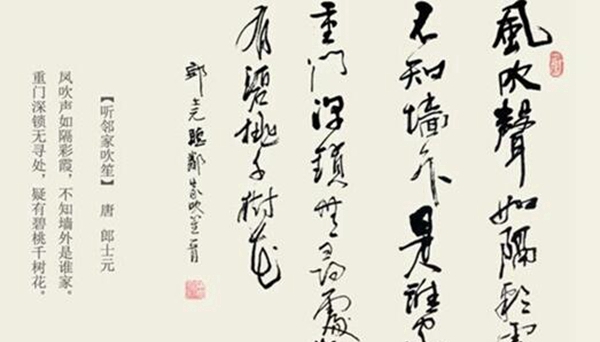 風吹聲如隔彩
不知墙外是誰家
重門深鎖無尋處
有碧桃千樹花
郎士元聽鄰家吹笙
【听邻家吹笙】 唐 郎士元
凤吹声如隔彩霞，不知墙外是谁家。
重门深锁无寻处，疑有碧桃千树花。